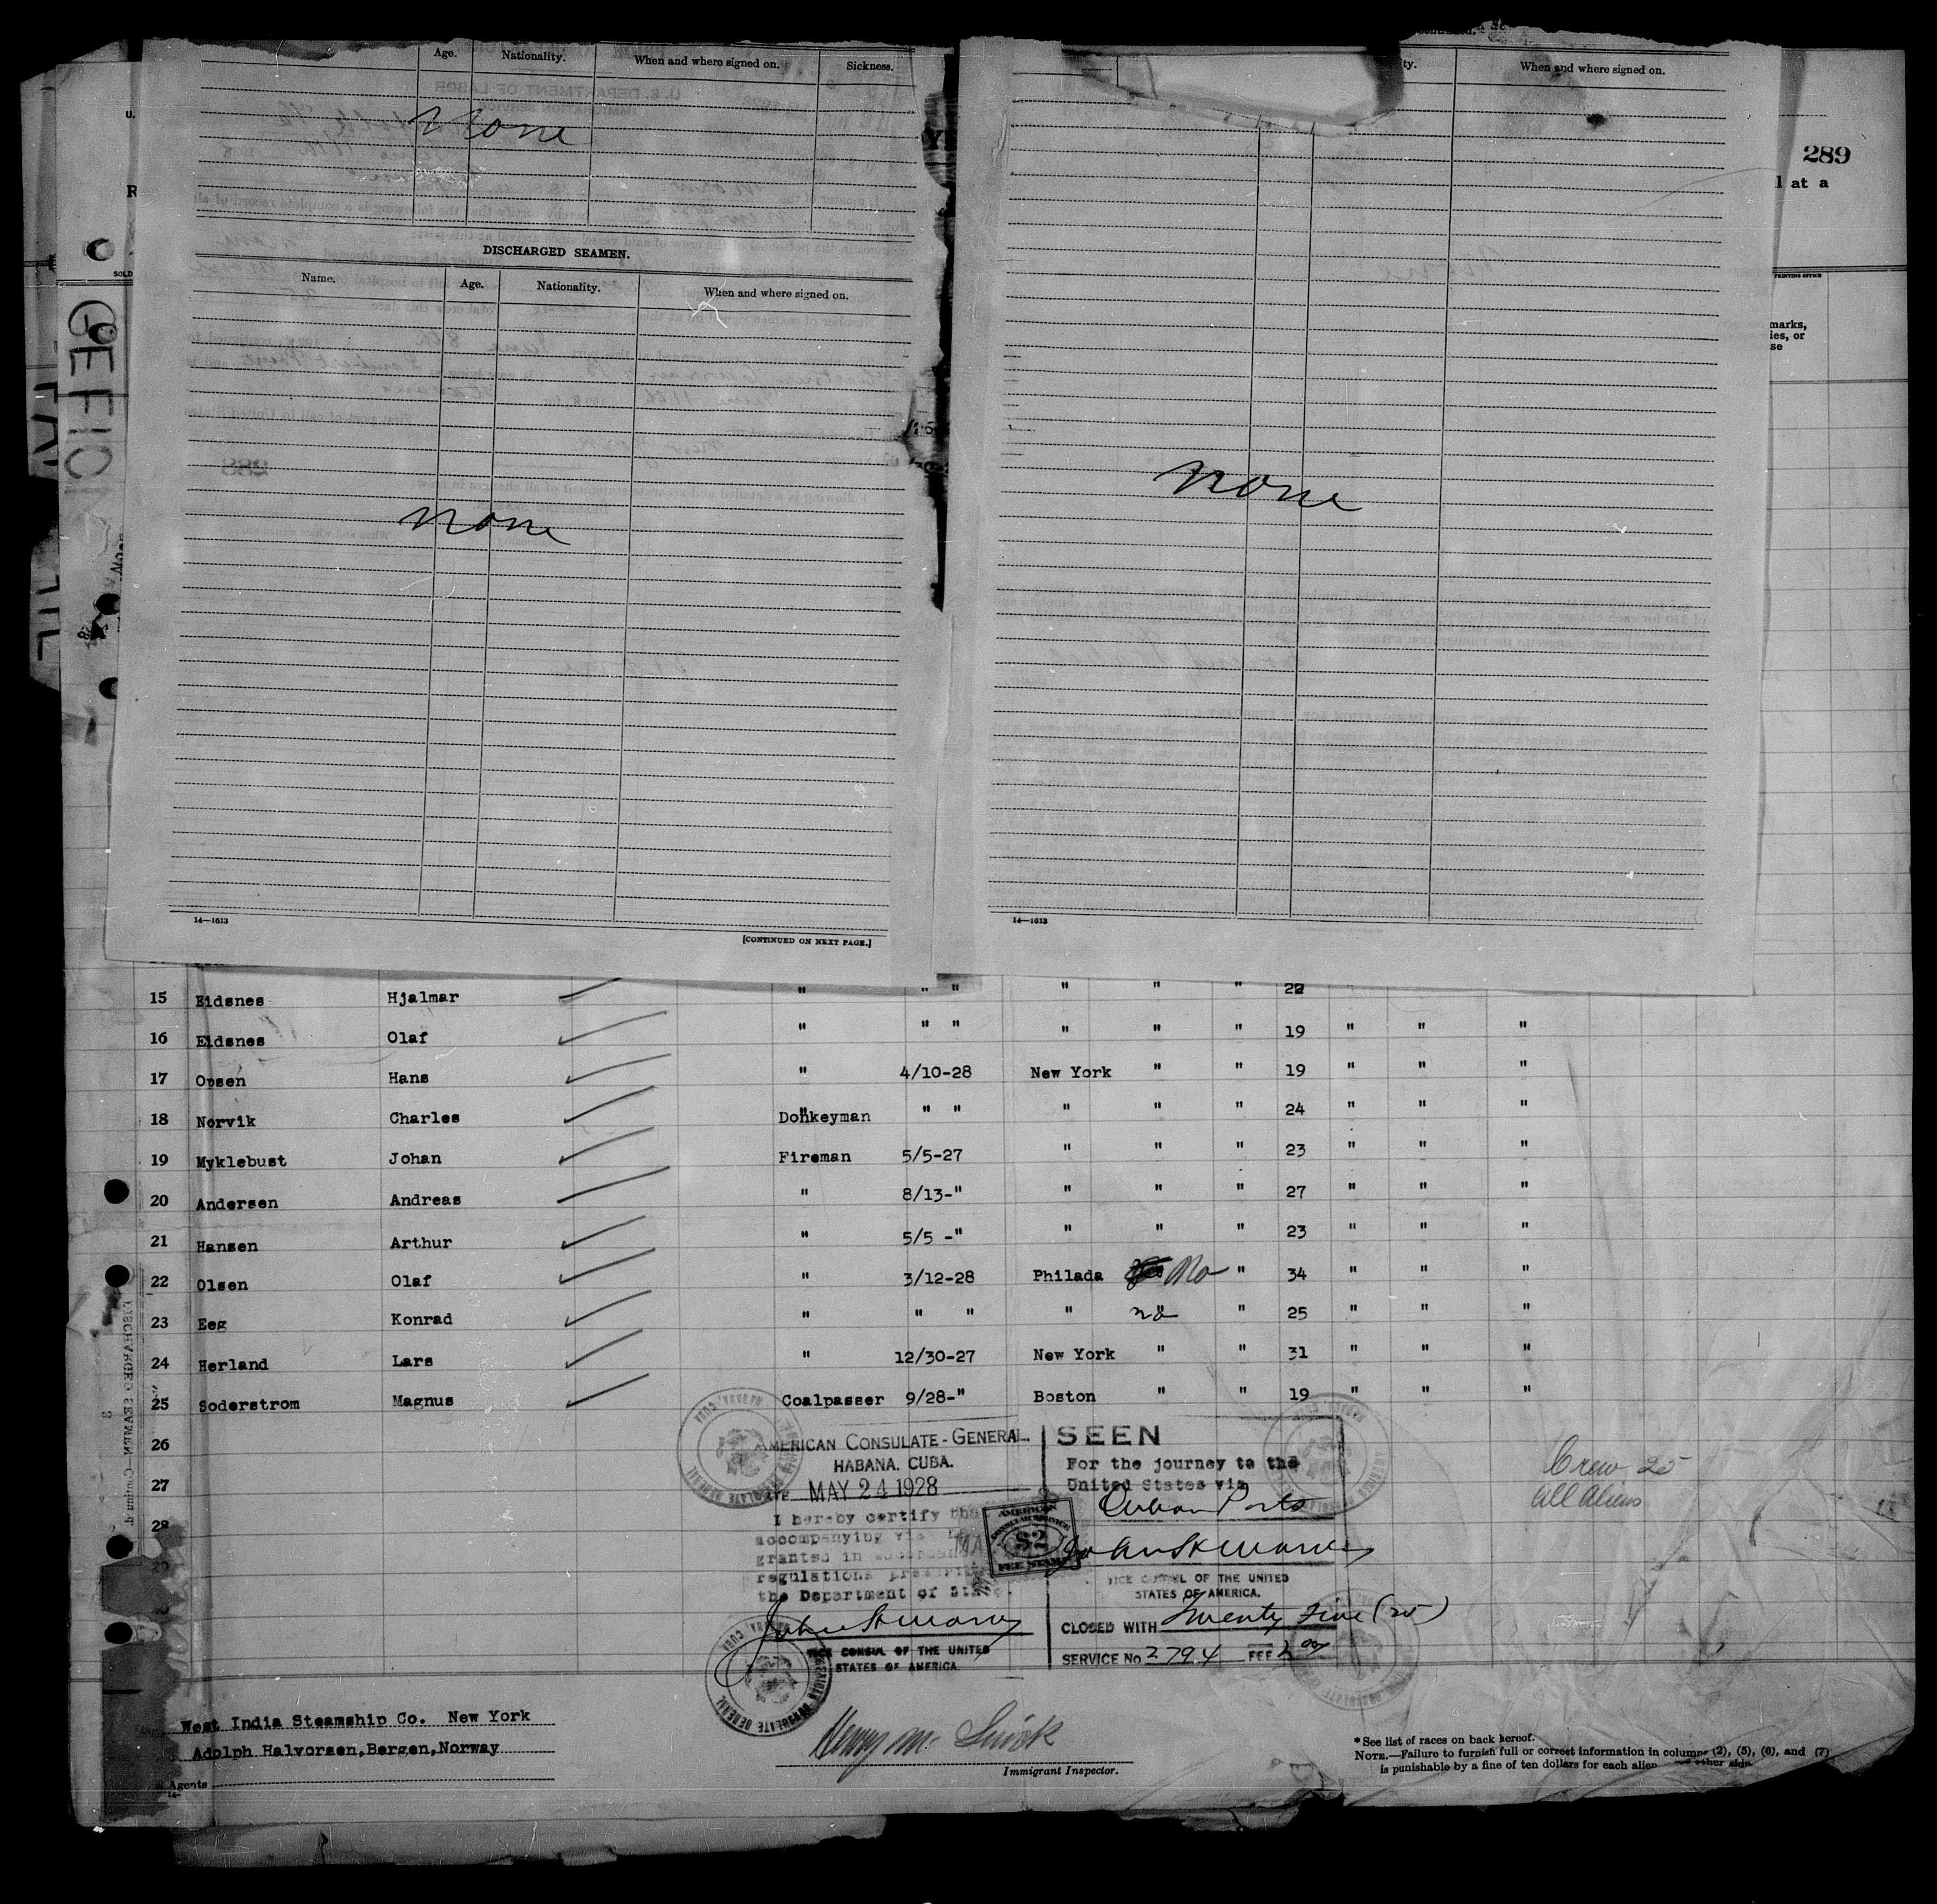 Age. Nationality. When and where signed on. Sickness.
None
DISCHARGED SEAMEN.
Name. Age. Nationality. When and where signed on.
None
14—1613
[CONTINUED ON NEXT PAGE.]
When and where signed on.
None
14—1613
289
l at a
PRINTING OFFICE
marks,
ies, or
se
15 Eidsnes Hjalmar " " " " " " 22
16 Eidsnes Olaf " " " " " " 19 " " "
17 Opsen Hans " 4/10-28 New York " " 19 " " "
18 Norvik Charles Donkeyman " " " " " 24 " " "
19 Myklebust Johan Fireman 5/5-27 " " " 23 " " "
20 Andersen Andreas " 8/13-" " " " 27 " " "
21 Hansen Arthur " 5/5 -" " " " 23 " " "
22 Olsen Olaf " 3/12-28 Philada No " 34 " " "
23 Eeg Konrad " " " " no " 25 " " "
24 Herland Lars " 12/30-27 New York " " 31 " " "
25 Soderstrom Magnus Coalpasser 9/28-" Boston " " 19 " " "
26
27
28
AMERICAN CONSULATE-GENERAL.
HABANA. CUBA.
MAY 24 1928
I hereby certify
accompanying
granted in
regulations
the Department of State.
VICE CONSUL OF THE UNITED
STATES OF AMERICA
SEEN
For the journey to the
United States via
Cuban Ports
AMERICAN
CONSULAR SERVICE
$2
FEE STAMP
VICE CONSUL OF THE UNITED
STATES OF AMERICA.
CLOSED WITH Twenty Five (25)
SERVICE No 2794 FEE 2 00
Crew 25
All Aliens
West India Steamship Co. New York
Adolph Halvorsen,Bergen,Norway
Agents
Immigrant Inspector.
* See list of races on back hereof.
NOTE.—Failure to furnish full or correct information in columns (2), (5), (6), and (7)
is punishable by a fine of ten dollars for each alien other side.